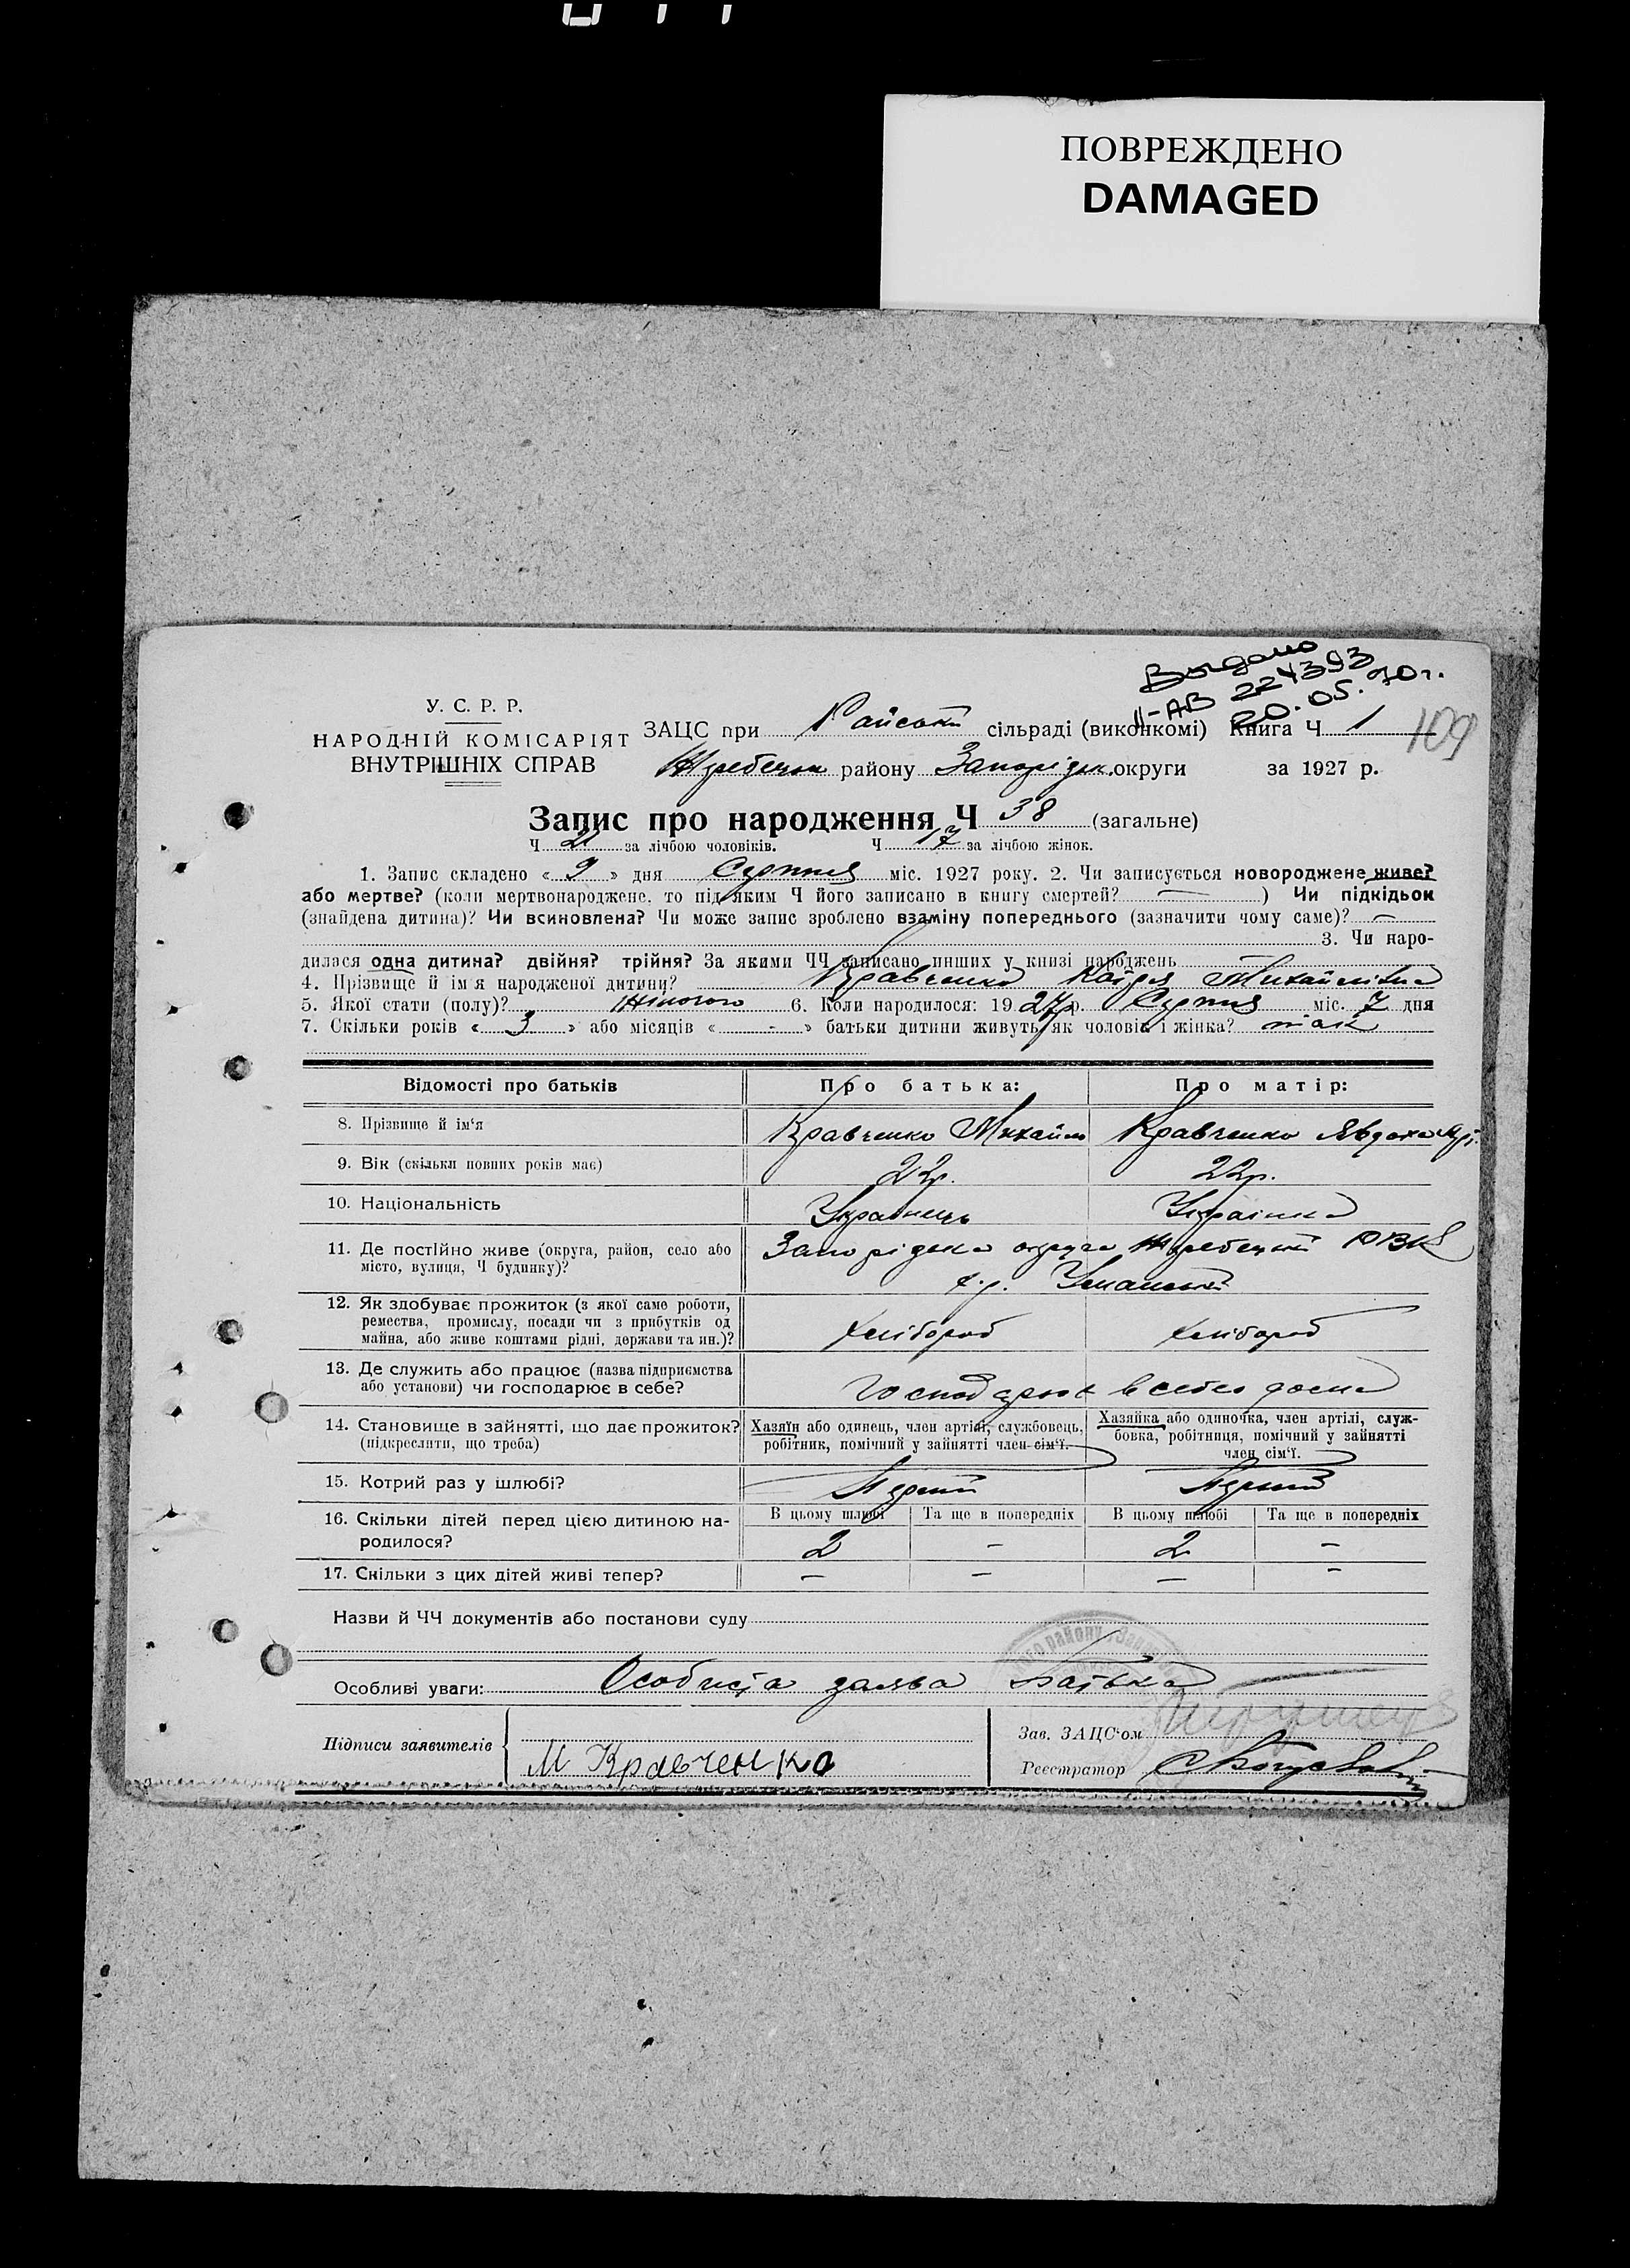 ПОВРЕЖДЕНО
DAMAGED
Выдано
II-АВ 224393
20.05.70г.
109
У. С. Р. Р.
НАРОДНІЙ КОМІСАРІЯТ
ВНУТРІШНІХ СПРАВ
ЗАЦС при Райській сільраді (виконкомі) Книга Ч 1
Жеребецьк району Запорізьк. округи за 1927 р.
Запис про народження Ч 38 (загальне)
Ч 21 за лічбою чоловіків. Ч 17 за лічбою жінок.
1. Запис складено « 9 » дня Серпня міс. 1927 року. 2. Чи записується новороджене живе?
або мертве? (коли мертвонароджене, то під яким Ч його записано в книгу смертей? — ) Чи підкідьок
(знайдена дитина)? Чи всиновлена? Чи може запис зроблено взаміну попереднього (зазначити чому саме)? —
3. Чи наро-
дилася одна дитина? двійня? трійня? За якими ЧЧ записано инших у книзі народжень
4. Прізвище й ім'я народженої дитини? Кравченко Катря Михайлівна
5. Якої стати (полу)? Жіночого 6. Коли народилося: 19 27р. Серпня міс. 7 дня
7. Скільки років « 3 » або місяців « - » батьки дитини живуть як чоловік і жінка? так
Відомості про батьків Про батька: Про матір:
8. Прізвище й ім'я Кравченко Михайло Кравченко Явдоха
9. Вік (скільки повних років має) 22р. 22р.
10. Національність Українець Українка
11. Де постійно живе (округа, район, село або
місто, вулиця, Ч будинку)?
Запорізька округа Жеребецький РВК
х. Уманський
12. Як здобуває прожиток (з якої саме роботи,
ремества, промислу, посади чи з прибутків од
майна, або живе коштами рідні, держави та ин.)?
Хлібороб Хлібороб
13. Де служить або працює (назва підприємства
або установи) чи господарює в себе?
Господарює в себе дома
14. Становище в зайнятті, що дає прожиток?
(підкреслити, що треба)
Хазяїн або одинець, член артілі, службовець,
робітник, помічний у зайнятті член сім'ї.
Хазяйка або одиночка, член артілі, служ-
бовка, робітниця, помічний у зайнятті
член сім'ї.
15. Котрий раз у шлюбі? Перший Перший
16. Скільки дітей перед цією дитиною на-
родилося?
В цьому шлюбі Та ще в попередніх В цьому шлюбі Та ще в попередніх
2 — 2 —
17. Скільки з цих дітей живі тепер? — — — —
Назви й ЧЧ документів або постанови суду
Особливі уваги: Особиста заява батька
Підписи заявителів М Кравченко
Зав. ЗАЦС'ом
Реєстратор